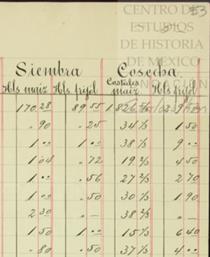 CENTRO DE
ESTUDIOS
DE HISTORIA
DE MEXICO
53
Siembra Cosecha
Hls maiz Hls frijol Costales maiz Hls frijol
170 28 89 55
90 25 34 1/2 1 50
1 00 1 00 38 1/2 9 00
1 04 72 19 1/2 4 50
1 00 56 27 1/2 2 70
1 00 50 30 1/2 1 90
2 30 38
1 00 50 15 1/2 6 40
80 50 37 1/2 4 00